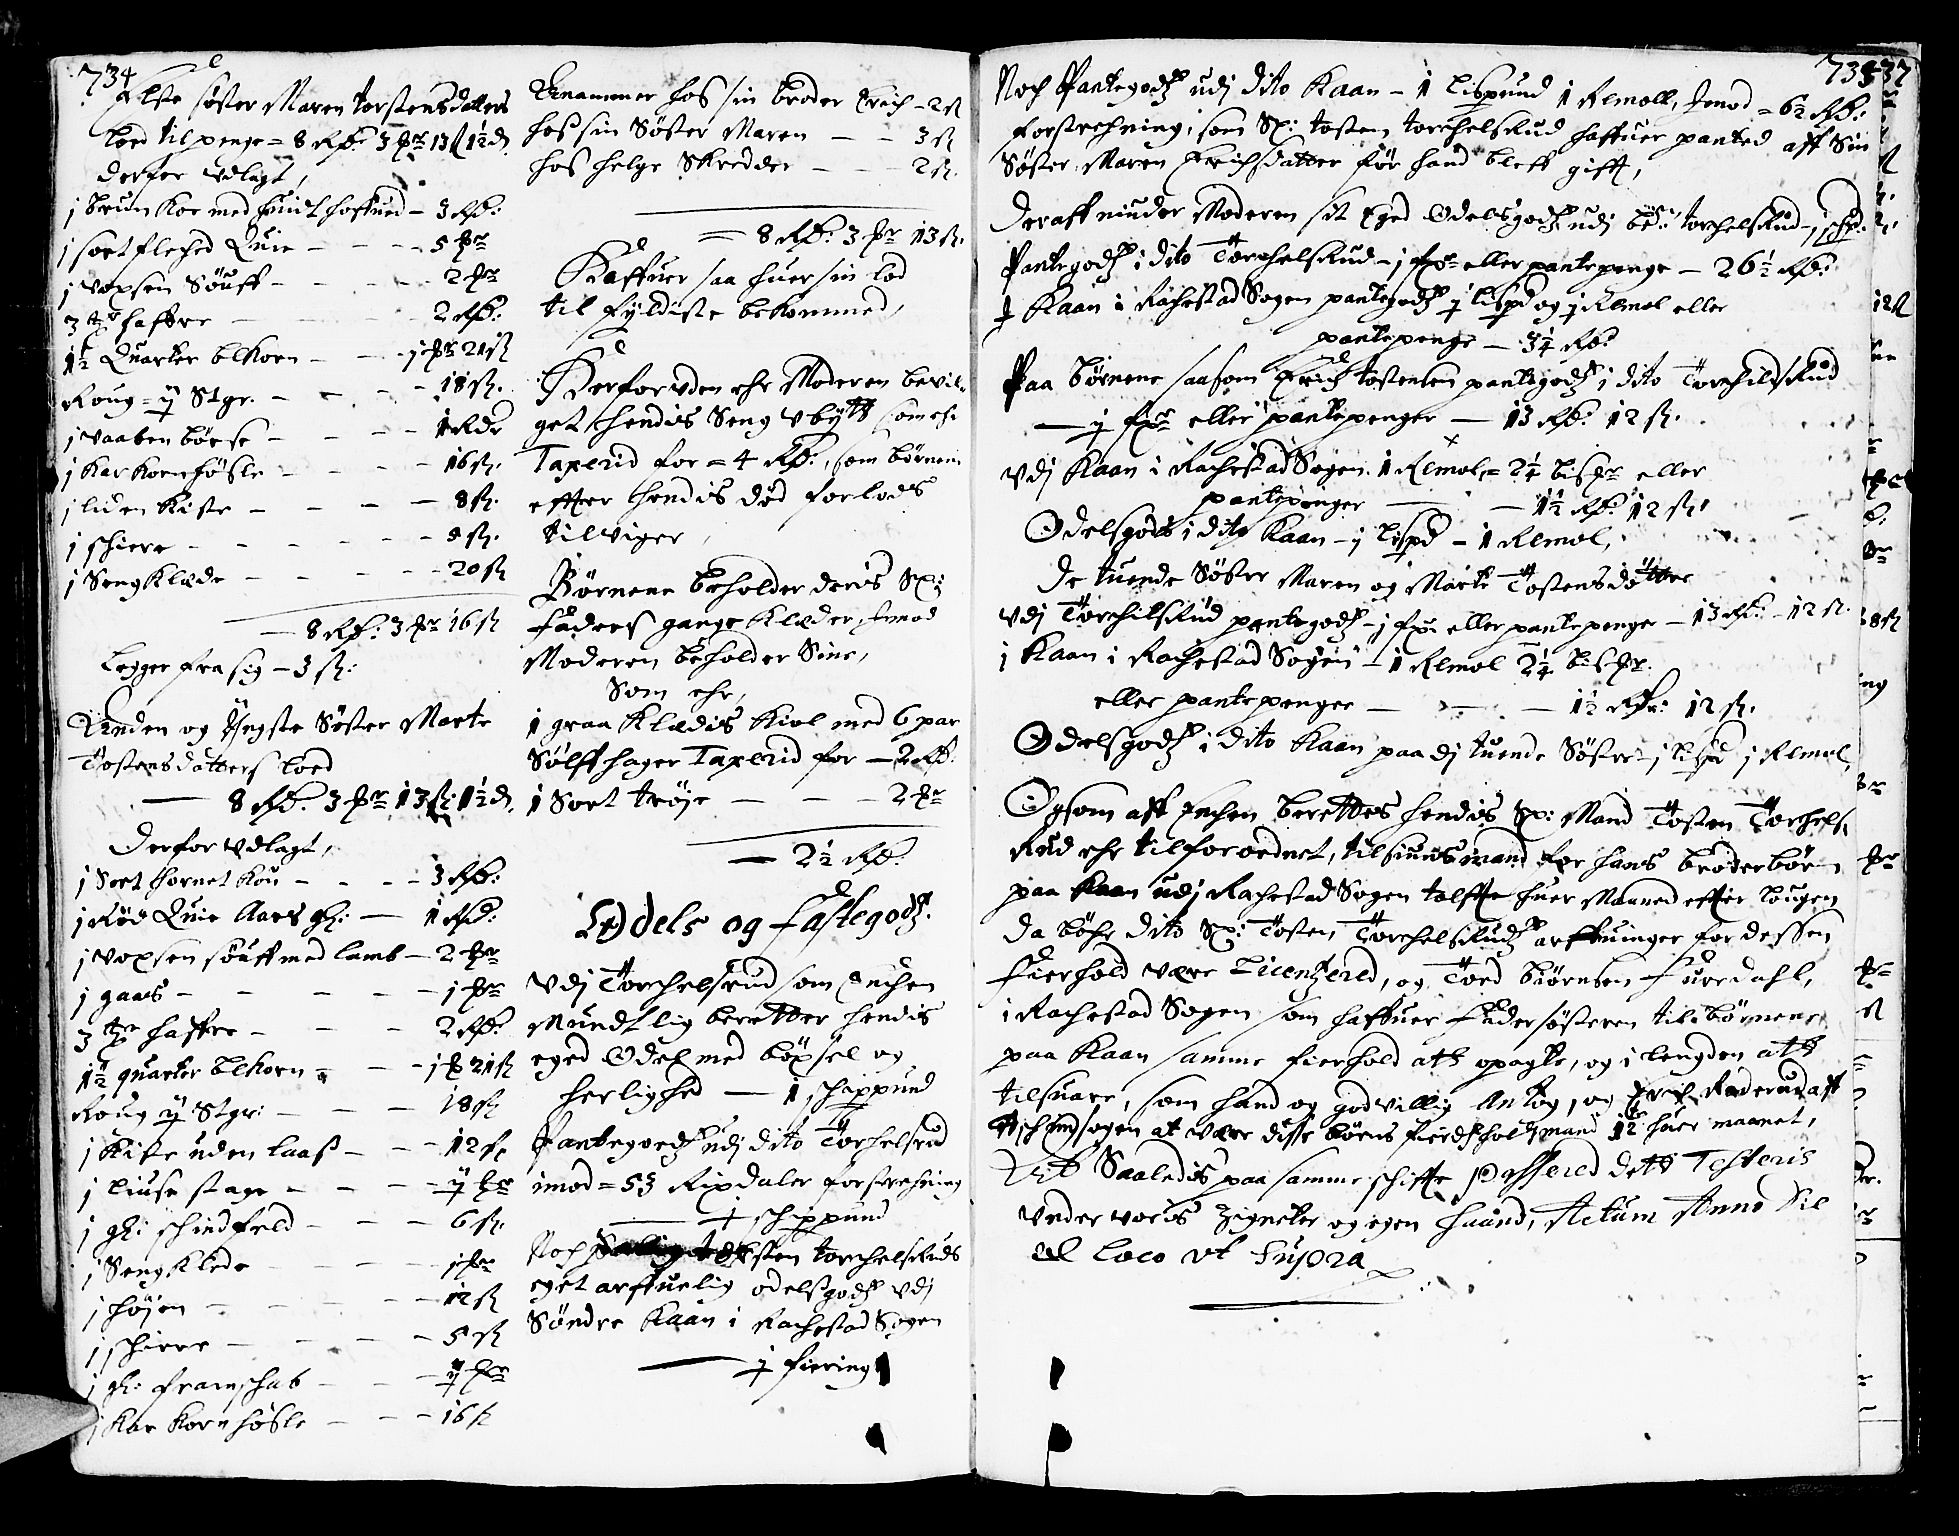 734
Elste søster Maren torstensdatters
lod til penge = 8 Rd. 3 ort 13 ß 1½ d.
derfor udlagt,
j brun Koe med huidt hoffued - 3 Rd:
j sort flched Quie - - - 5 ort
j voxsen Söuff - - - 2 ort
3 tr haffre - - - 2 Rd:
1½ Quarter blkorn - - - j ort 21 ß
Roug = ij Stgr. - - - 18 ß.
j vaaben börse - - - 1 Rdr
j Kar Kornhøsle - - - 16 ß.
j liden Kiste - - - 8 ß.
j schiere - - - 8 ß.
j Sengklæde - - - 20 ß
- 8 Rd: 3 ort 16 ß
Legger fra sig - 3 ß:
Anden og Yngste Söster Marte
Tostensdatters lod
- 8 Rd. 3 ort 13 ß: 1½ d.
derfor udlagt,
j Sort hornet Kou - - - 3 Rd:
j Rød Quie Aars gl: - 1 Rd:
j voxsen söuff med lamb - 2 ort
j gaas - - - j ort
3 tr haffre - - - 2 Rd:
1½ quarter blkorn - - - j ort 21 ß
Roug ij Stgr: - - - 18 ß
j Kiste uden laaß - - - 12 ß
j liuse stage - - - ½ ort
j gl: schindfeld - - - 6 ß.
j Sengklede - - - j ort
j höjen - - - 12 ß
j schiere - - - 5 ß
j gl: framschab - - - ½ ort
j Kar Kornhösle - - - 16 ß
Annammer hos sin broder Erich - 2 ß
hos sin Söster Maren - 3 ß
hos helge Skredder - - - 2 ß.
= 8 Rd: 3 ort 13 ß.
Haffuer saa huer sin lod
til fyldiste bekommed,
Herforuden ehr Moderen bevil-
get hendis Seng ubytt som ehr
Taxerid for = 4 Rd:, som börnene
effter hendis död forlods
tilviger,
Börnene beholder deris Sl:
faders gangeklæder, imod
Moderen beholder Sine,
Som ehr,
1 graa klædis Kiol med 6 par
Sölffhager Taxerid for - 2 Rd:
1 Sort tröje - - - 2 ort
- 2½ Rd:
Oddels og fastegodz.
Udj Torchelsrud som Enchen
Mundtlig beretter hendis
eged Odel med böxsel og
herlighed - 1 schippund
Pantegoedz udj dito Torchelsrud
imod = 53 Rixdaler forstrechning
- ½ schippund
Noch Tosten torchelsruds
eget arffuelig odelsgodz udj
Söndre Kaan i Rachestad Sogen
- ½ fiering
735
Noch Pantegodz udj dito Kaan - 1 Lispund 1 Remoll, Imod = 6½ Rd:
forstrechning, som Sl: tosten torchelsRud haffuer panted aff Sin
Söster Maren Erichsdatter för hand bleff gifft,
Deraff niuder Moderen sit Eged Odelsgodz udj be:te torchelsRud - j schp:
Pantegodz i dito TorchelsRud - j fr eller pantepenge - 26½ Rd:
J Kaan i Rachestad Sogen pantegodz ½ lispd og ½ Remol eller
pantepenge - 3¼ Rd:
Paa börnene saasom Erich tostensen pantegodz i dito TorchildsRud
- ½ fr eller pantepenger - 13 Rd: 12 ß.
Udj Kaan i Rachestad Sogen. 1 Remol = 2¼ bis eller
pantepenger - - 1½ Rd: 12 ß:
Odelsgods i dito Kaan - j lispd - 1 Remol,
De tuende Söster Maren og Marte Tostensdötter
udj TorchilsRud pantegodz - j fr. eller pantepenge - 13 Rd: - 12 ß.
i Kaan i Rachestad Sogen - 1 Remol 2¼ bis
eller pantepenger - - - 1½ Rd: 12 ß.
Odelsgodz i dito Kaan paa dj tuende Söstre - j lispd j Remol,
Ogsom aff Enchen berettes hendis Sl: Mand Tosten Torchels-
Rud ehr tilforordnet, tilsiunsmand for hans broderbörn
paa Kaan udj Rachestad Sogen tolffte huer Maaned effter Lougen
da böhr dito Sl: Tosten TorchelsRudz arffuinger for dessen
fierhold være Licentzered, og Tord biörnsen Furedahl,
i Rachestad Sogen som haffuer fadersösteren til börnene
paa Kaan samme fierhold att opagte, og i lengden att
tilsuare, som hand og godvillig Antog, og Erich Røderud aff
sogen at være disse börns fierdholdsmand 12te huer maanet,
Att Saaledis paa samme schiffte passered dett Testeris
under voris zigneter og egen haand, Actum Anno Die
et Loco ut Supra